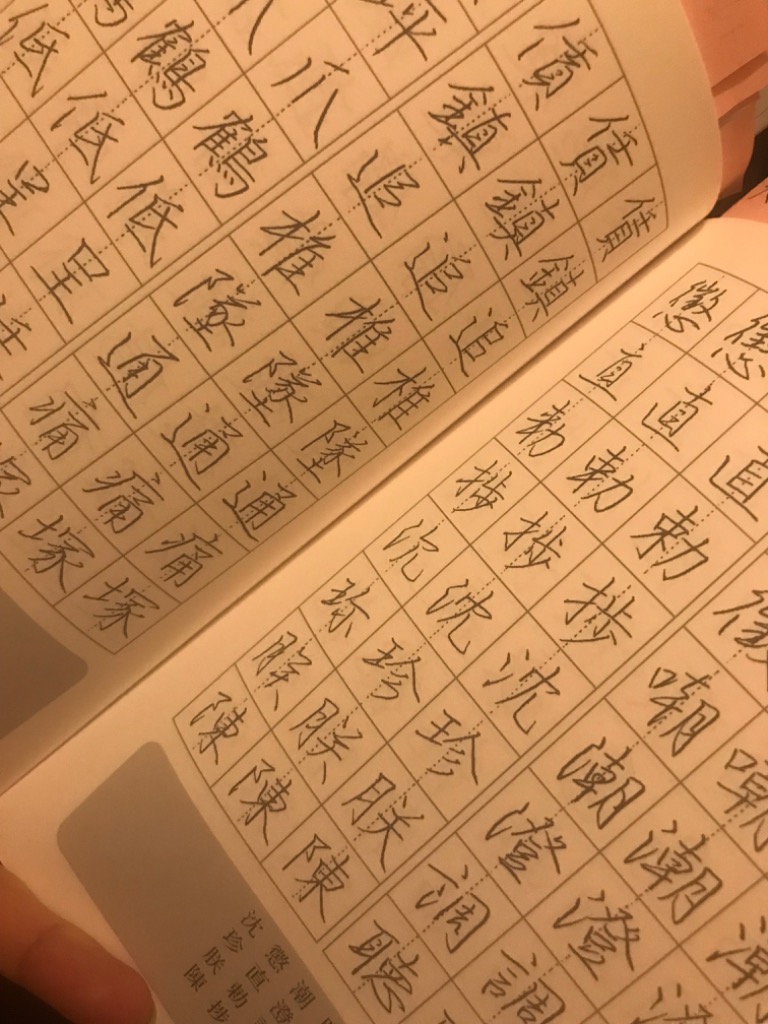 坪
爪
鶴鶴
低低低
呈呈
債債債
鎮鎮鎮
追追追
椎椎椎
墜墜墜
通通通
痛痛痛
塚塚
懲懲
直直直
勅勅勅
捗捗捗
沈沈沈
珍珍珍
朕朕朕
陳陳陳
嘲嘲
潮潮潮
澄澄
調調
聴
潮澄
懲直勅捗
沈珍朕陳